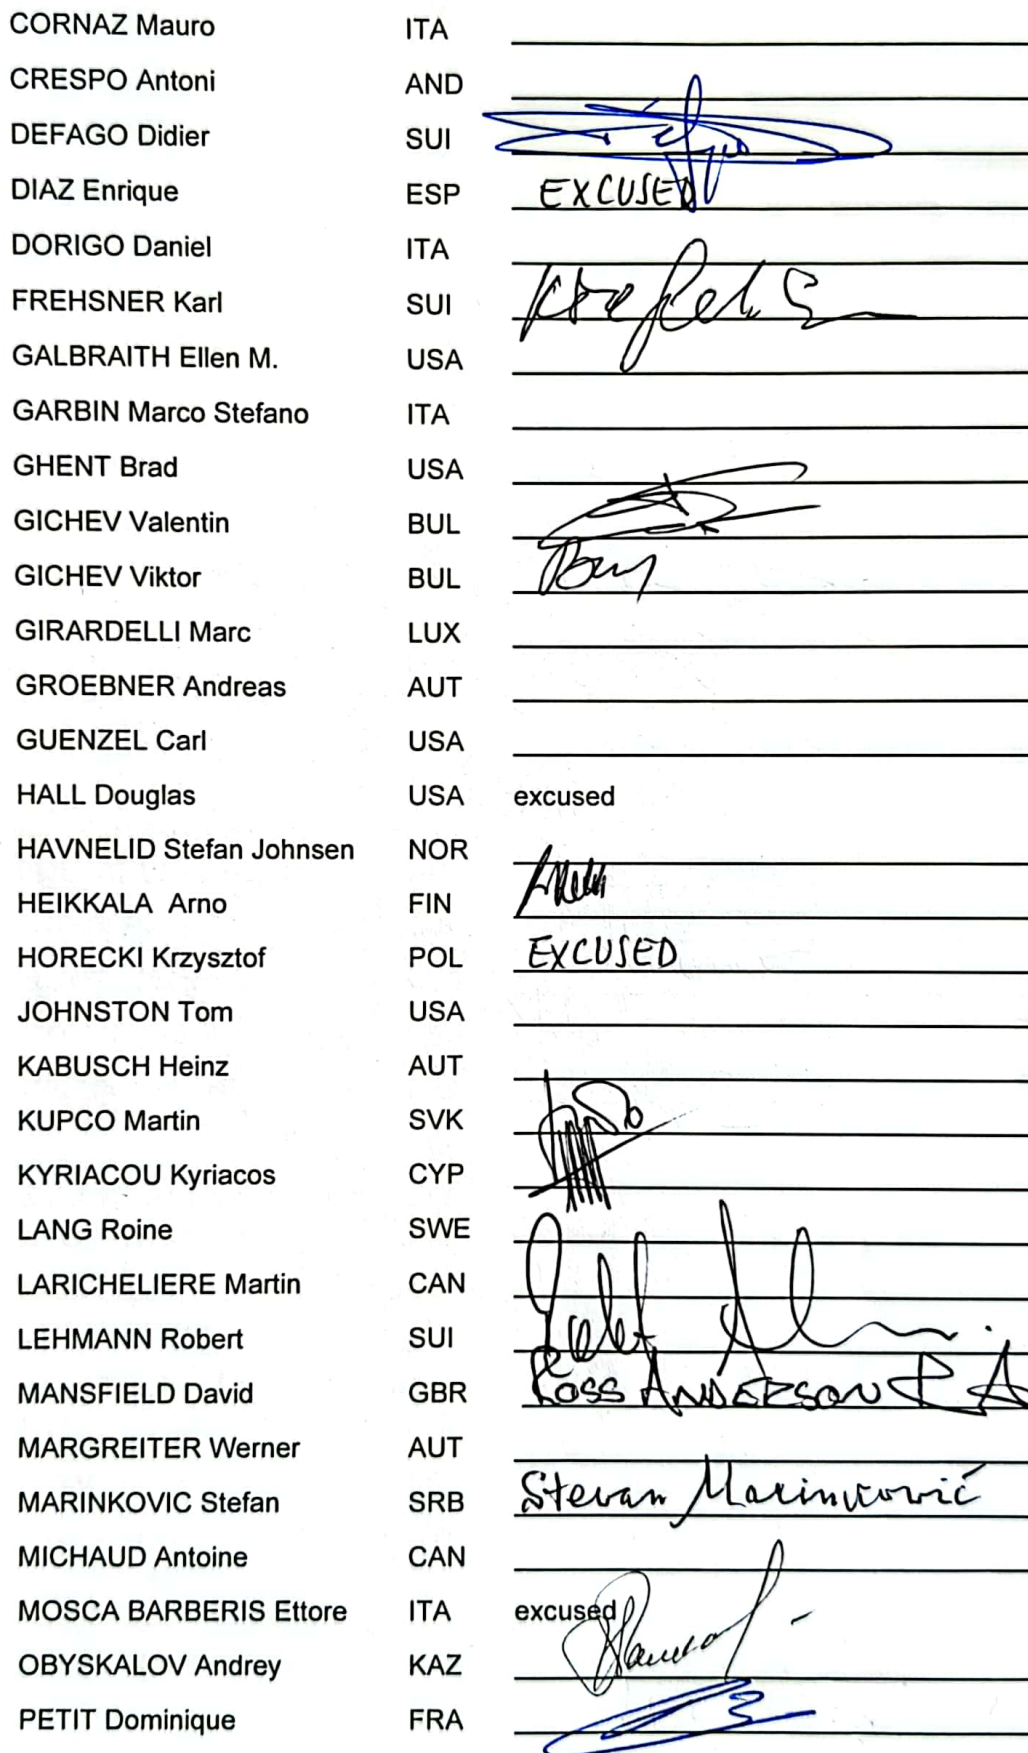 CORNAZ Mauro ITA
CRESPO Antoni AND
DEFAGO Didier SUI
DIAZ Enrique ESP EXCUSED
DORIGO Daniel ITA
FREHSNER Karl SUI
GALBRAITH Ellen M. USA
GARBIN Marco Stefano ITA
GHENT Brad USA
GICHEV Valentin BUL
GICHEV Viktor BUL
GIRARDELLI Marc LUX
GROEBNER Andreas AUT
GUENZEL Carl USA
HALL Douglas USA excused
HAVNELID Stefan Johnsen NOR
HEIKKALA Arno FIN
HORECKI Krzysztof POL EXCUSED
JOHNSTON Tom USA
KABUSCH Heinz AUT
KUPCO Martin SVK
KYRIACOU Kyriacos CYP
LANG Roine SWE
LARICHELIERE Martin CAN
LEHMANN Robert SUI
MANSFIELD David GBR ROSS ANDERSON R A
MARGREITER Werner AUT
MARINKOVIC Stefan SRB Stevan Marinković
MICHAUD Antoine CAN
MOSCA BARBERIS Ettore ITA excused
OBYSKALOV Andrey KAZ
PETIT Dominique FRA